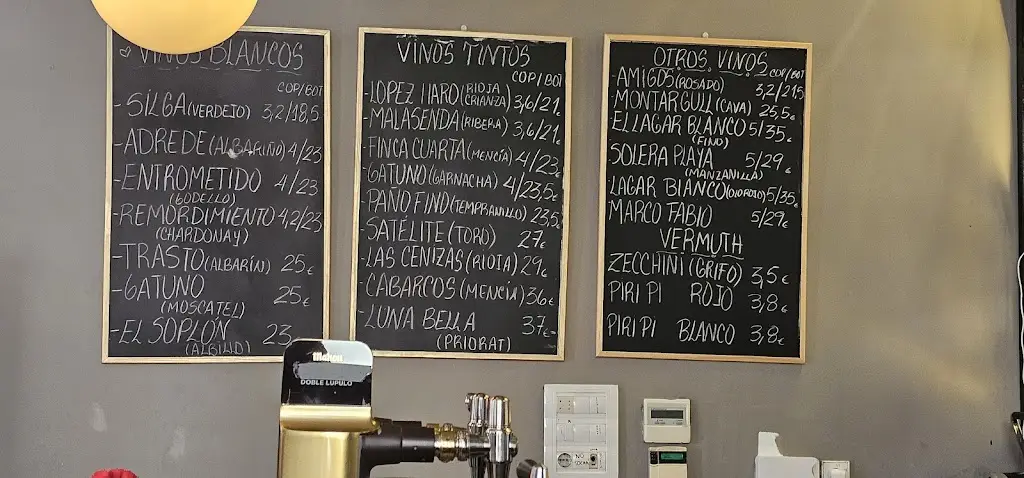 VINOS BLANCOS
COP/BOT
-SILGA (VERDEJO) 3,2/18,5
-ADREDE (ALBARIÑO) 4/23
-ENTROMETIDO 4/23
(GODELLO)
-REMORDIMIENTO 4,2/23
(CHARDONAY)
-TRASTO (ALBARÍN) 25€
-GATUNO 25€
(MOSCATEL)
-EL SOPLÓN 23
(ALBILLO)
VINOS TINTOS
COP/BOT
-LOPEZ HARO (RIOJA CRIANZA) 3,6/21€
-MALASENDA (RIBERA) 3,6/21€
-FINCA CUARTA (MENCÍA) 4/23€
-GATUNO (GARNACHA) 4/23,5€
-PAÑO FINO (TEMPRANILLO) 23,5
-SATÉLITE (TORO) 27€
-LAS CENIZAS (RIOJA) 29€
-CABARCOS (MENCÍA) 36€
-LUNA BELLA 37€
(PRIORAT)
OTROS VINOS
COP/BOT
-AMIGOS (ROSADO) 3,2/21,5
-MONTARGULL (CAVA) 25,5€
-EL LAGAR BLANCO 5/35€
(FINO)
SOLERA PLAYA 5/29€
(MANZANILLA)
LAGAR BLANCO (OLOROSO) 5/35€
MARCO FABIO 5/29€
VERMUTH
ZECCHINI (GRIFO) 3,5€
PIRIPI ROJO 3,8€
PIRIPI BLANCO 3,8€
Mahou
DOBLE LÚPULO